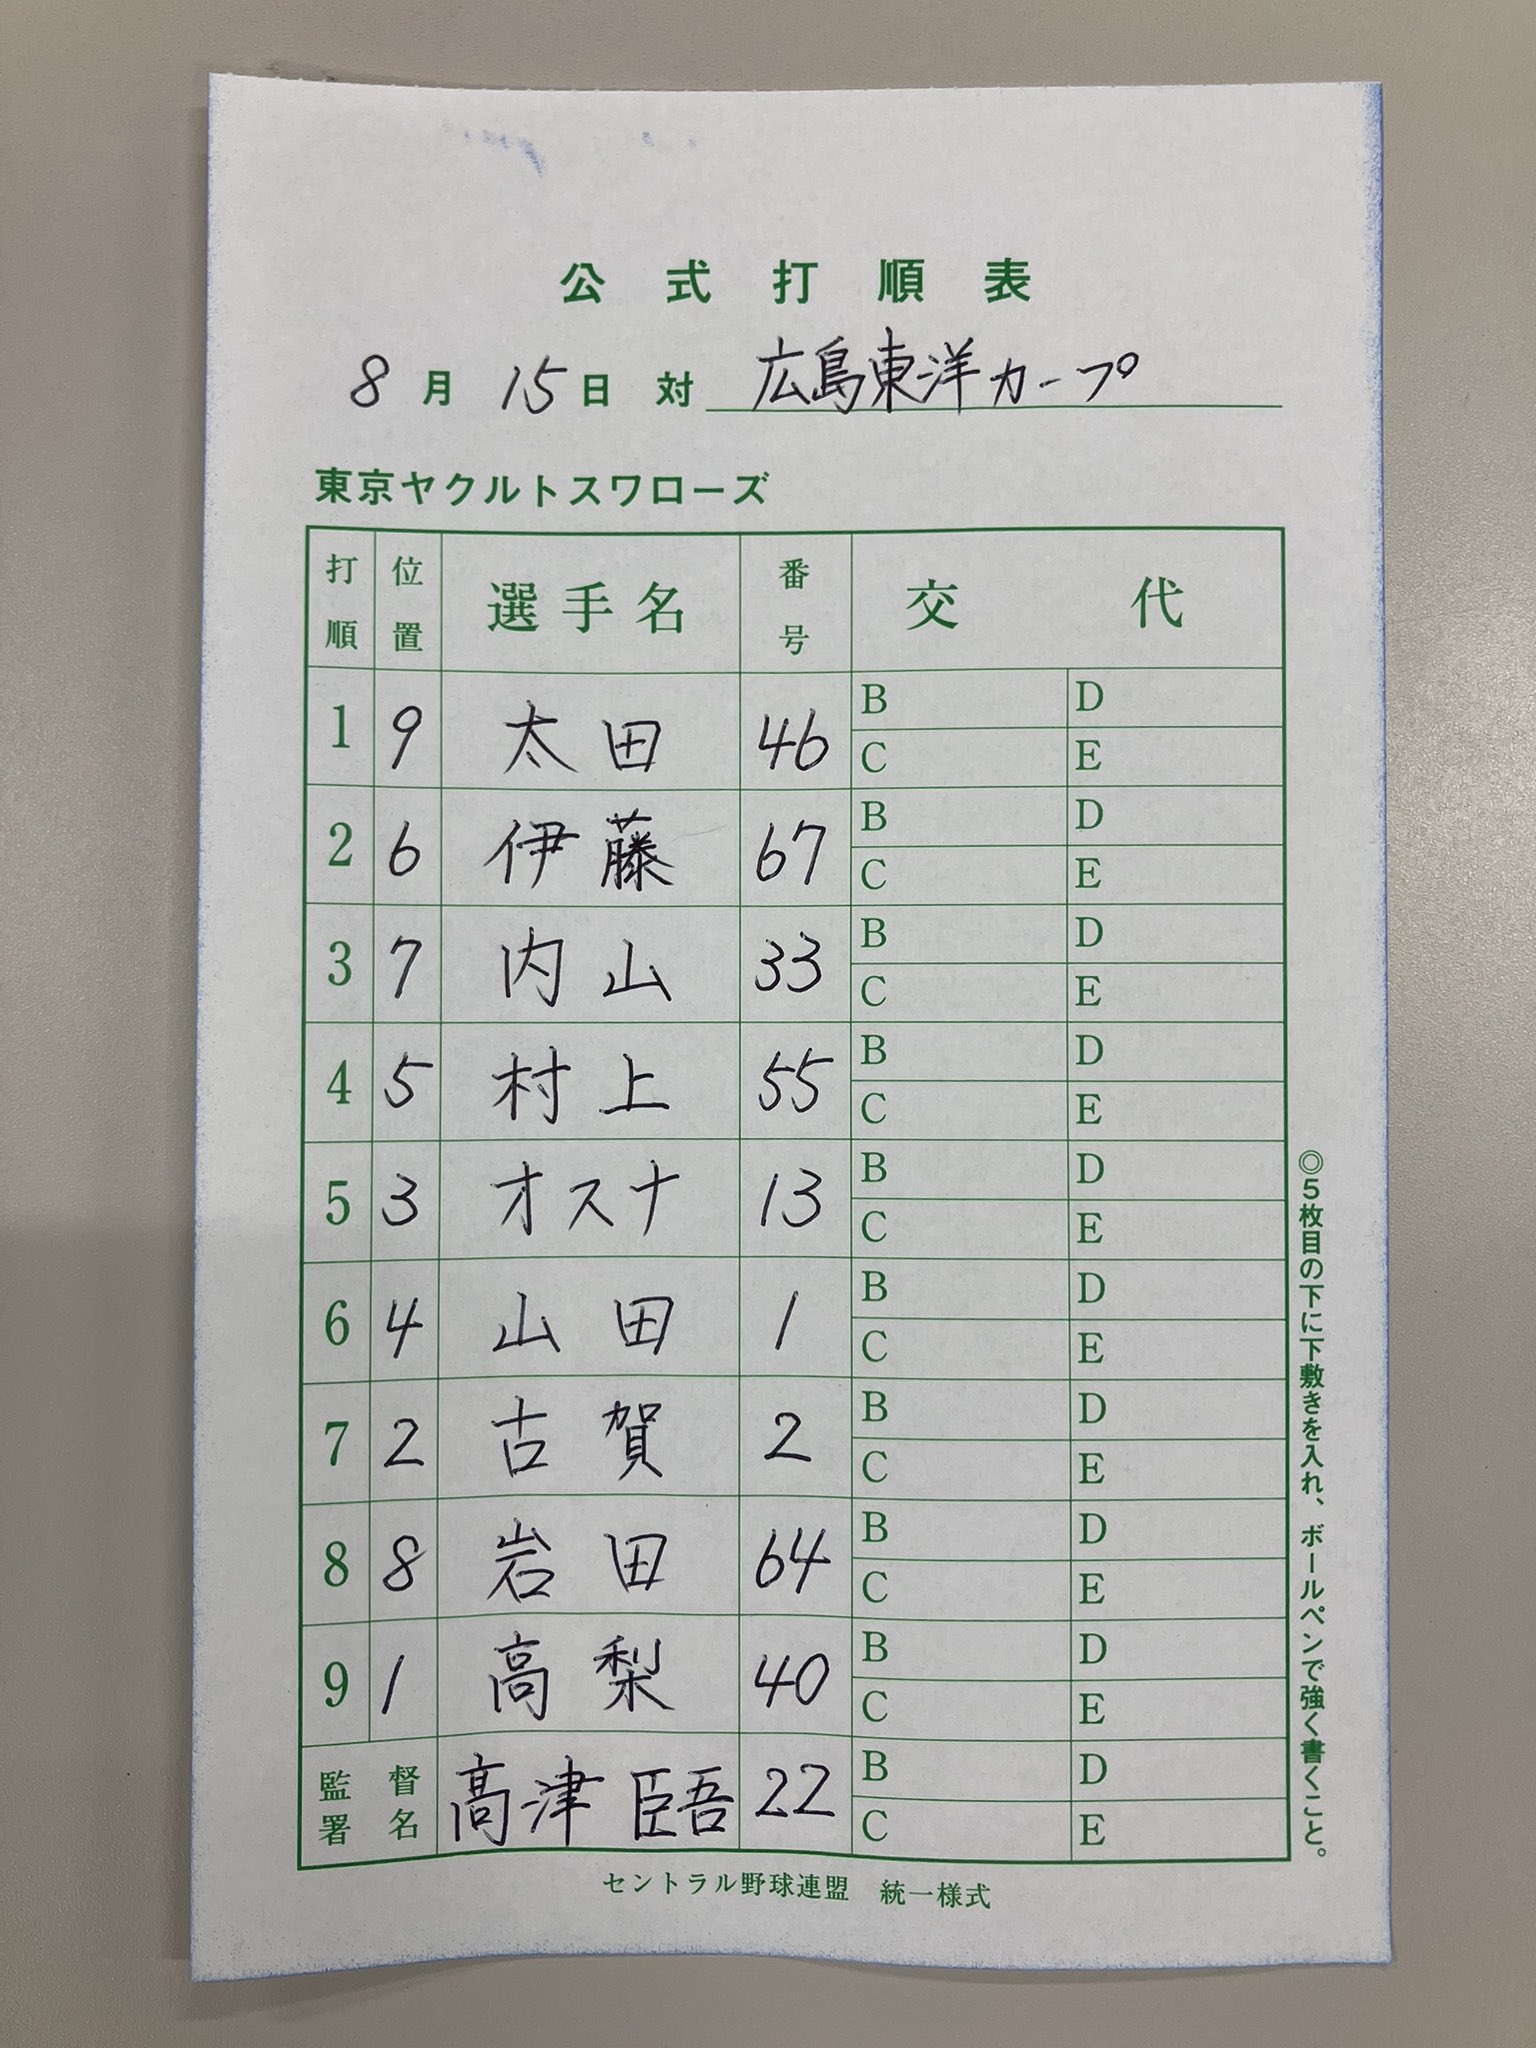 公式打順表
8月15日 対 広島東洋カープ
東京ヤクルトスワローズ
打順 位置 選手名 番号 交代
1 9 太田 46 B D
C E
2 6 伊藤 67 B D
C E
3 7 内山 33 B D
C E
4 5 村上 55 B D
C E
5 3 オスナ 13 B D
C E
6 4 山田 1 B D
C E
7 2 古賀 2 B D
C E
8 8 岩田 64 B D
C E
9 1 高梨 40 B D
C E
監督署名 高津臣吾 22 B D
C E
セントラル野球連盟 統一様式
◎5枚目の下に下敷きを入れ、ボールペンで強く書くこと。